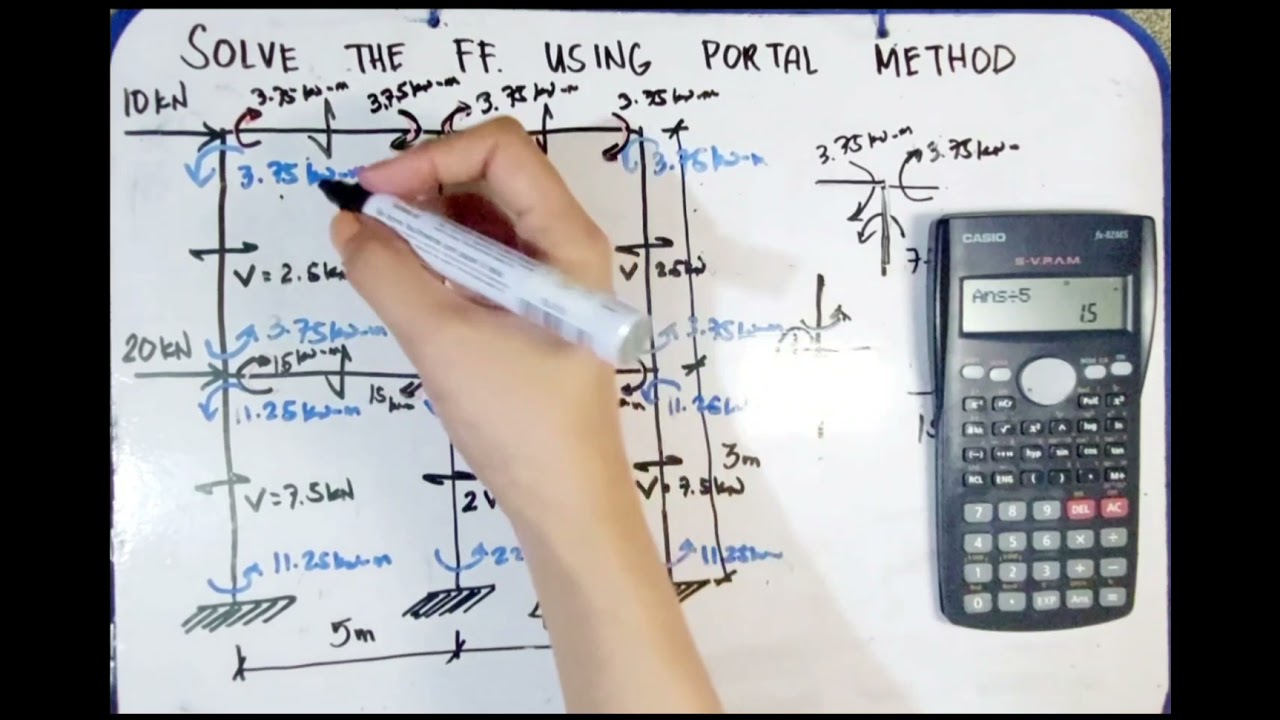 SOLVE THE FF. USING PORTAL METHOD
10 kN
3.75 kN-m
3.75 kN-m
3.75 kN-m
3.75 kN-m
3.75 kN-m
3.75 kN-m
3.75 kN-m
3.75 kN-
V = 2.5 kN
V 2.5 kN
20 kN
3.75 kN-m
15 kN-m
3.75 kN-m
11.25 kN-m
15
11.25
3m
V = 7.5 kN
2V
V = 7.5 kN
11.25 kN-m
22
11.25
5m
CASIO
fx-82MS
S-V.P.A.M.
Ans÷5
1.5
7 8 9 DEL AC
4 5 6 × ÷
1 2 3 + −
0 . EXP Ans =